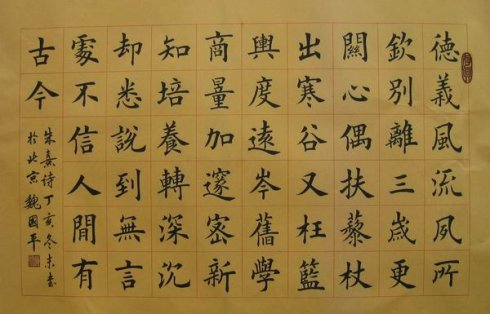 德義風流夙所
欽別離三歲更
關心偶扶藜杖
出寒谷又枉籃
輿度遠岑舊學
商量加邃密新
知培養轉深沉
却悉說到無言
處不信人間有
古今
朱熹诗丁亥冬末书
於北京魏國平